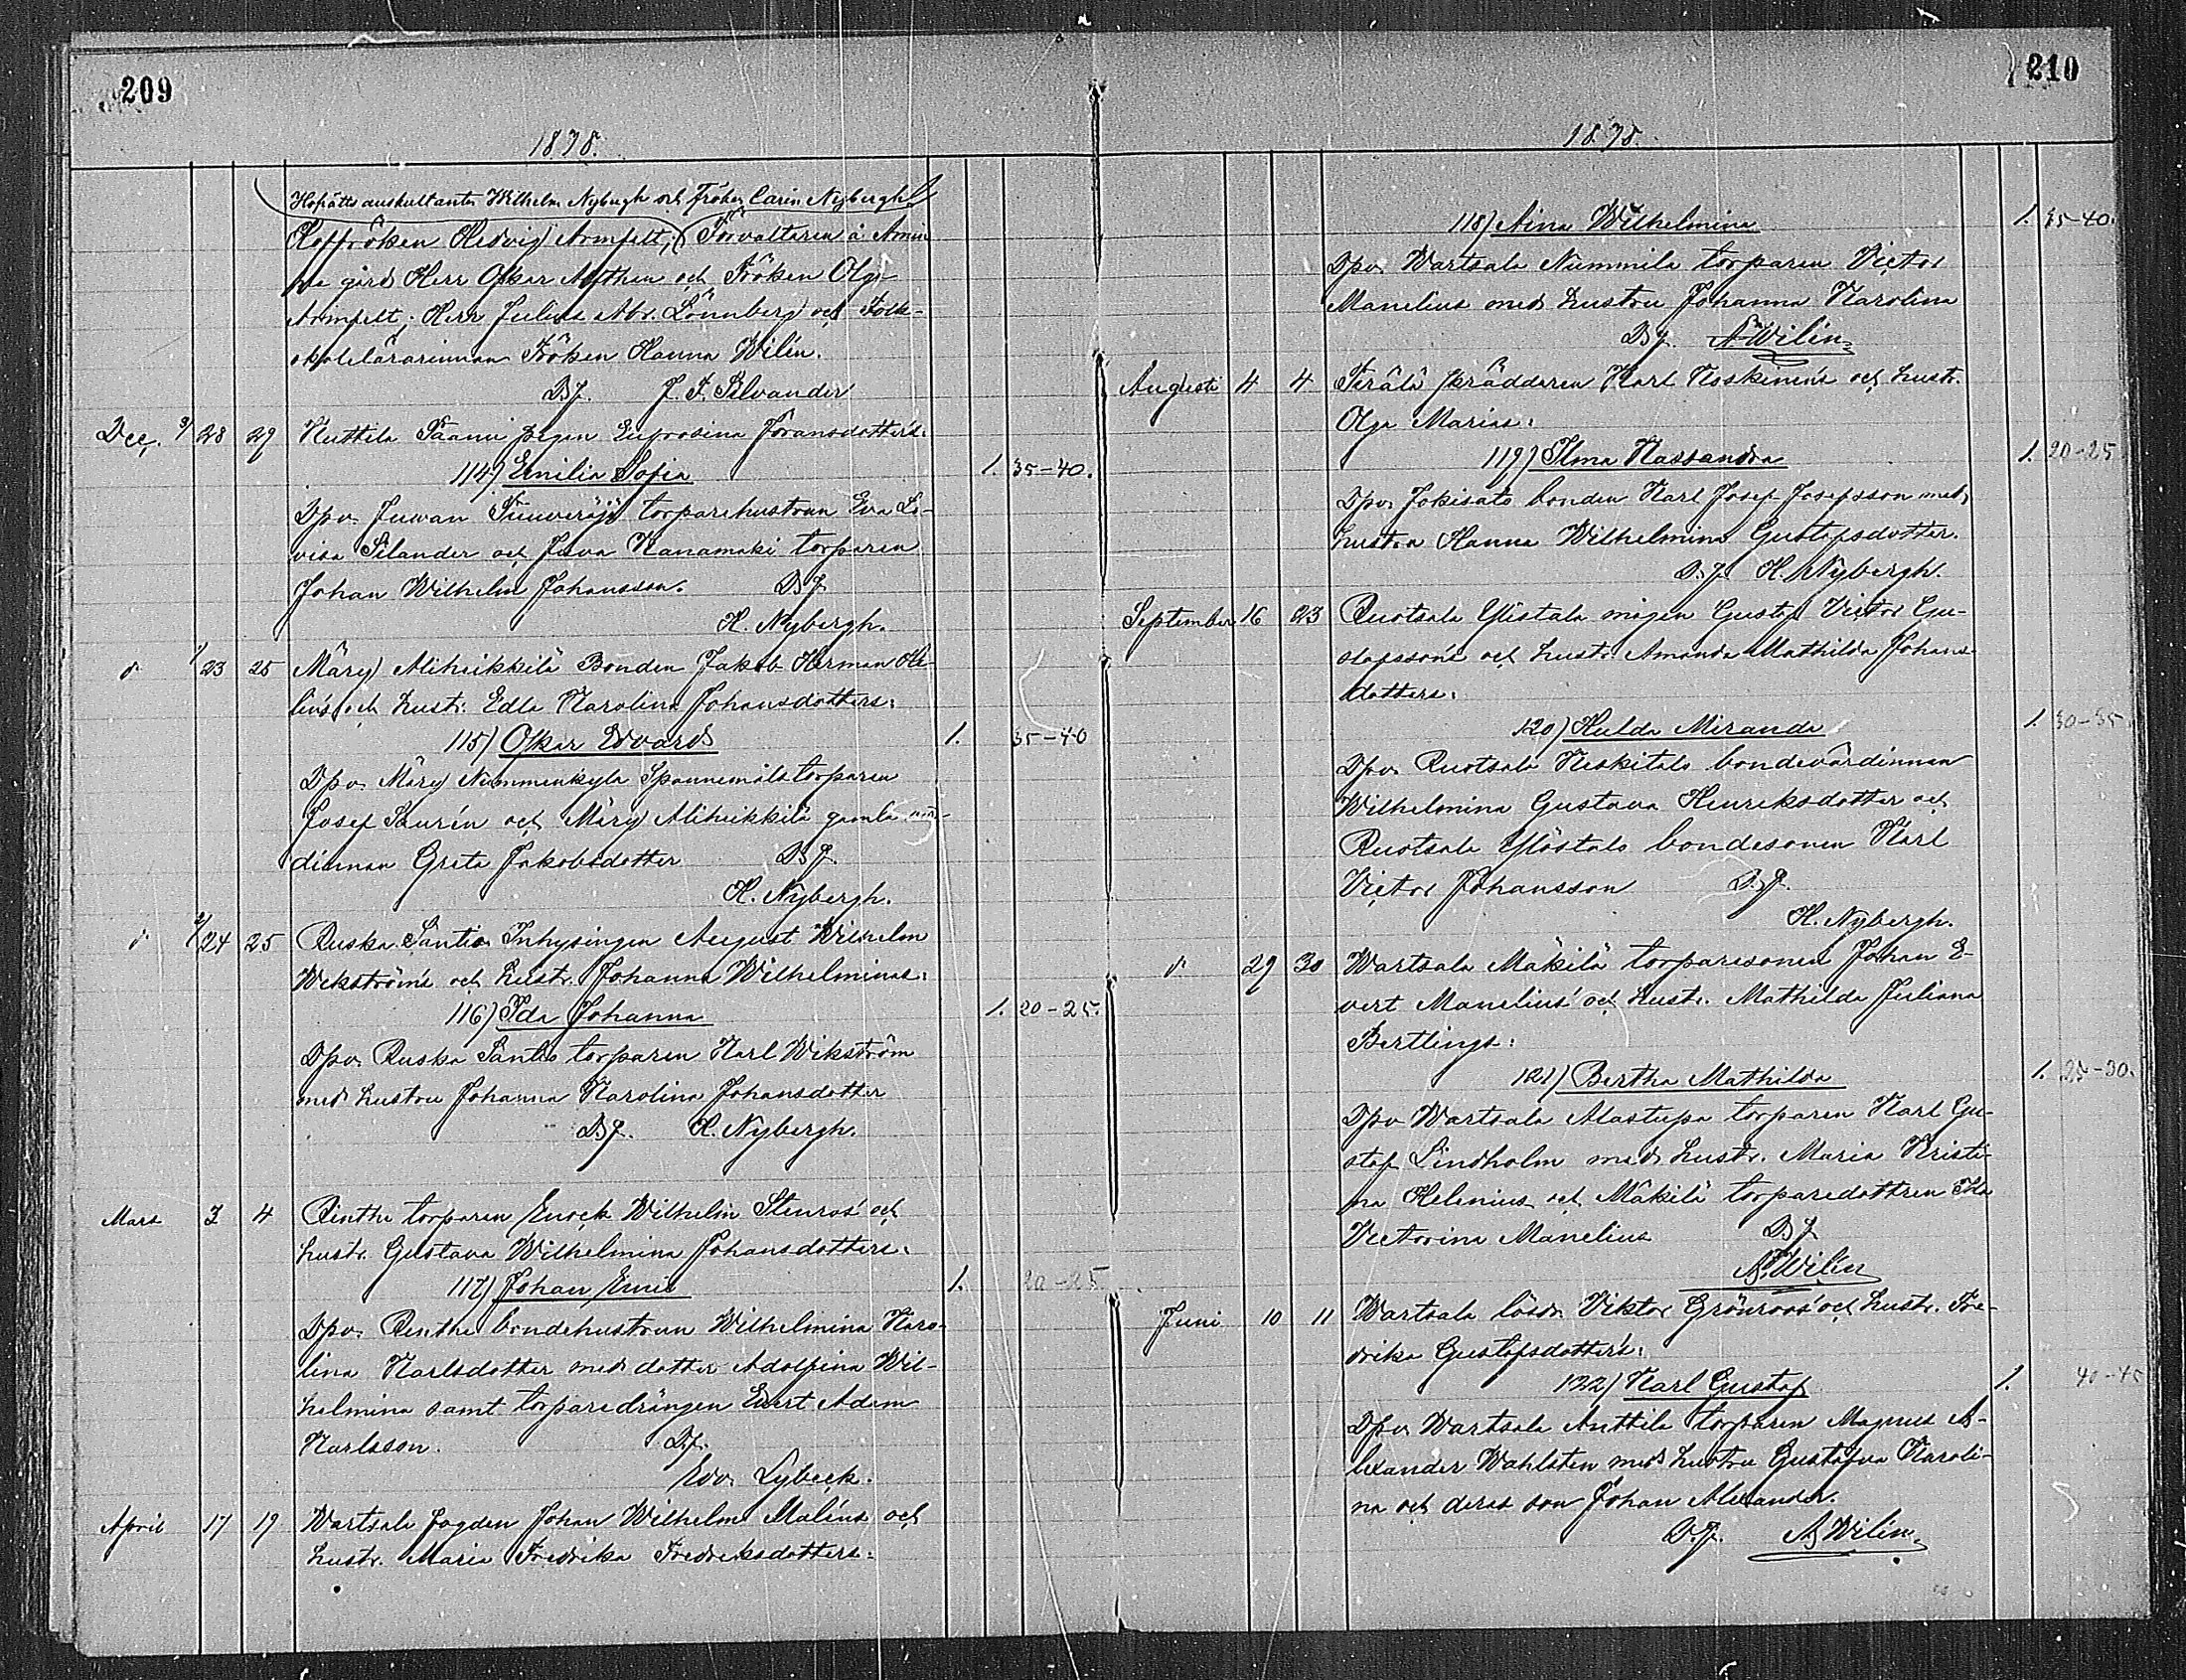 209
1878.
Hofrätts auskultanten Wilhelm Nybergh och Fröken Carin Nybergh
Hoffröken Hedvig Armfelt; Förvaltaren å Åmin-
ne gård Herr Oskar Althen och Fröken Olga
Armfelt; Herr Julius Abr. Lönnberg och Folk-
skolelärarinnan Fröken Hanna Wilén.
DJ. J. F. Silvander
Dec. 9/ 28 29 Kuttila Paanu pigan Eufrosina Göransdotters:
114) Emilia Sofia 1. 35-40.
Dpv. Juvan Tuuveröjs torparehustrun Eva Lo-
visa Silander och Juva Hanamäki torparen
Johan Wilhelm Johansson. DJ
H. Nybergh.
d 1/ 23 25 Märy Aliheikkilä Bonden Jakob Herman He-
lins och hustr. Edla Karolina Johansdotters:
115) Oskar Edvard 1. 35-40
Dpv. Märy Nummenkylä Spannemåls torparen
Josef Saurén och Märy Aliheikkilä gamla vär-
dinnan Greta Jakobsdotter DJ.
H. Nybergh.
d 2/ 24 25 Ruska Santio Inhysingen August Wilhelm
Wekströms och hustr. Johanna Wilhelminas:
116) Ida Johanna 1. 20-25.
Dpv. Ruska Santio torparen Karl Wikström
med hustru Johanna Karolina Johansdotter
DJ. H. Nybergh.
Mars 3 4 Rinthe torparen Enock Wilhelm Stenros' och
hustr. Gustava Wilhelmina Johansdotters:
117) Johan Emil 1. 20-25
Dpv. Rinthe bondehustrun Wilhelmina Karo-
lina Karlsdotter med dotter Adolfina Wil-
helmina samt torparedrängen Evert Adam
Karlsson. DJ.
Edv. Lybeck.
April 17 19 Wartsala fogden Johan Wilhelm Malins och
hustr. Maria Fredrika Fredriksdotters:
210
1878.
118) Aina Wilhelmina 1. 35-40.
Dpv. Wartsala Nummila torparen Victor
Manelius med hustru Johanna Karolina
DJ. A Wilén
Augusti 4 4 Perälä skräddaren Karl Koskinens och hustr.
Olga Marias:
119) Ilma Kassandra 1. 20-25
Dpv. Jokisato bonden Karl Josef Josefsson med
hustru Hanna Wilhelmina Gustafsdotter.
DJ. H. Nybergh.
September 16 23 Ruotsala Ylistalo mågen Gustaf Victor Gu-
stafssons och hustr. Amanda Mathilda Johans-
dotters:
120) Hulda Miranda 1. 30-35.
Dpv. Ruotsala Keskitalo bondevärdinnan
Wilhelmina Gustava Henriksdotter och
Ruotsala Ylöstalo bondesonen Karl
Victor Johansson DJ.
H. Nybergh.
d 29 30 Wartsala Mäkilä torparesonen Johan E-
vert Manelius' och hustr. Mathilda Juliana
Bertlings:
121) Bertha Mathilda 1. 25-30.
Dpv Wartsala Alastupa torparen Karl Gu-
staf Lindholm med hustr. Maria Kristi-
na Helenius och Mäkilä torparedottren Ida
Victorina Manelius DJ
A Wilén
Juni 10 11 Wartsala lösdr. Viktor Grönroos' och hustr. Fre-
drika Gustafsdotters:
122) Karl Gustaf 1. 40-45
Dpv. Wartsala Anttila torparen Magnus A-
lexander Wahlsten med hustru Gustafva Karoli-
na och deras son Johan Alexander.
DJ. A Wilén